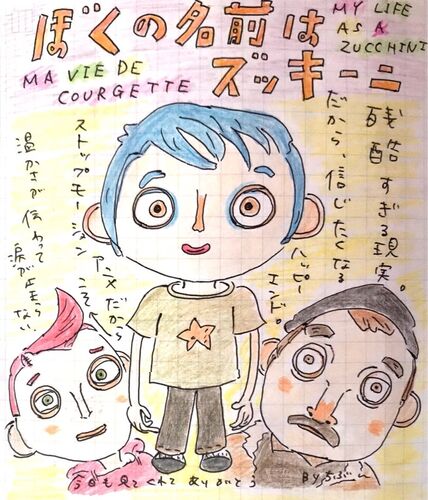 ぼくの名前は
ズッキーニ
MY LIFE
AS A
ZUCCHINI
MA VIE DE
COURGETTE
残酷すぎる現実。
だから、信じたくなる
ハッピー
エンド。
ストップモーション
アニメだから
こそ
温かさが伝わって
涙が止まらない
今日も見てくれてありがとう
BY